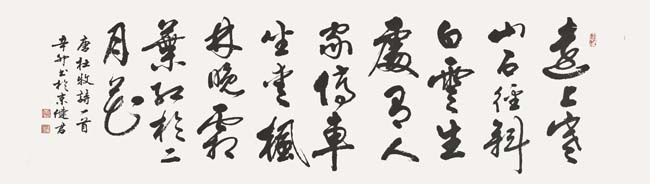 遠上寒
山石徑斜
白雲生
處有人
家停車
坐愛楓
林晚霜
葉紅於二
月花
唐杜牧詩一首
辛卯书於京